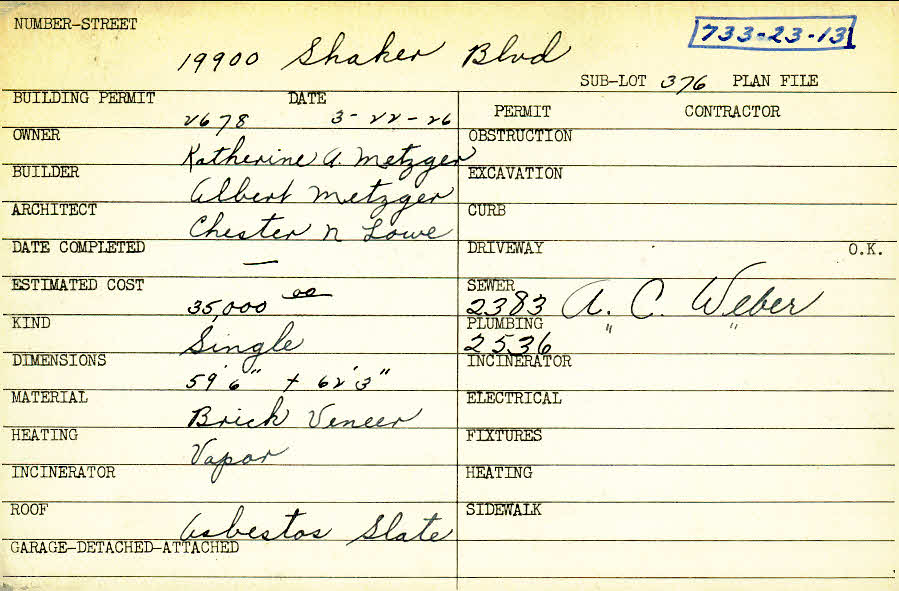 NUMBER-STREET
733-23-13
19900 Shaker Blvd
SUB-LOT 376 PLAN FILE
BUILDING PERMIT DATE
2678 3-22-26
OWNER
Katherine A. Metzger
BUILDER
Albert Metzger
ARCHITECT
Chester N Lowe
DATE COMPLETED
—
ESTIMATED COST
35,000 00
KIND
Single
DIMENSIONS
59'6" + 62'3"
MATERIAL
Brick Veneer
HEATING
Vapor
INCINERATOR
ROOF
Asbestos Slate
GARAGE-DETACHED-ATTACHED
PERMIT CONTRACTOR
OBSTRUCTION
EXCAVATION
CURB
DRIVEWAY O.K.
SEWER
2383 A. C. Weber
PLUMBING " "
2536
INCINERATOR
ELECTRICAL
FIXTURES
HEATING
SIDEWALK